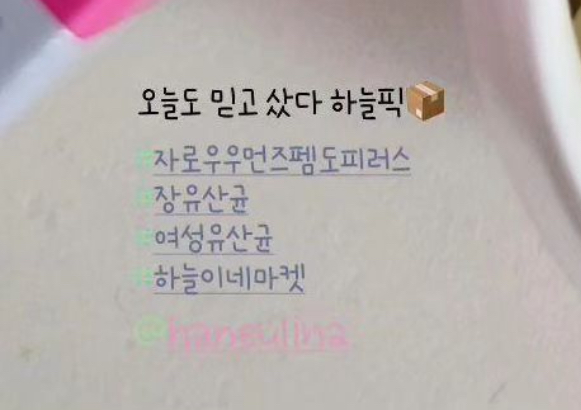 오늘도 믿고 샀다 하늘픽📦
#자로우우먼즈펨도피러스
#장유산균
#여성유산균
#하늘이네마켓
@haneulina